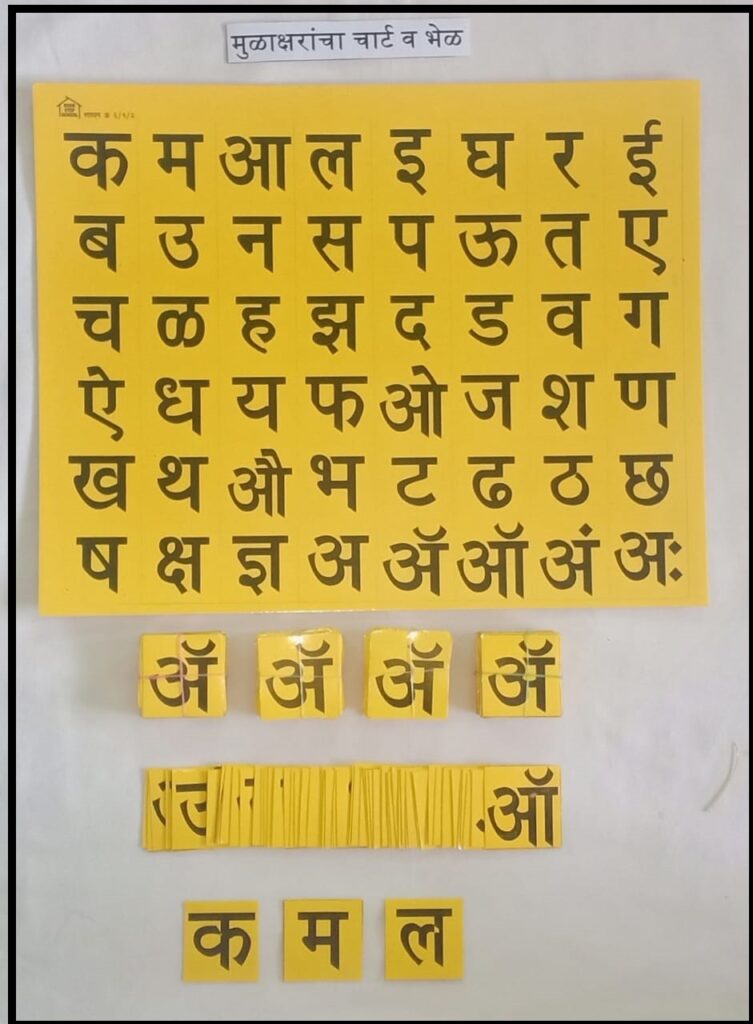 मुळाक्षरांचा चार्ट व भेळ
क म आ ल इ घ र ई
ब उ न स प ऊ त ए
च ळ ह झ द ड व ग
ऐ ध य फ ओ ज श ण
ख थ औ भ ट ढ ठ छ
ष क्ष ज्ञ अ ॲ ऑ अं अः
ॲ ॲ ॲ ॲ
उ ऑ
क म ल